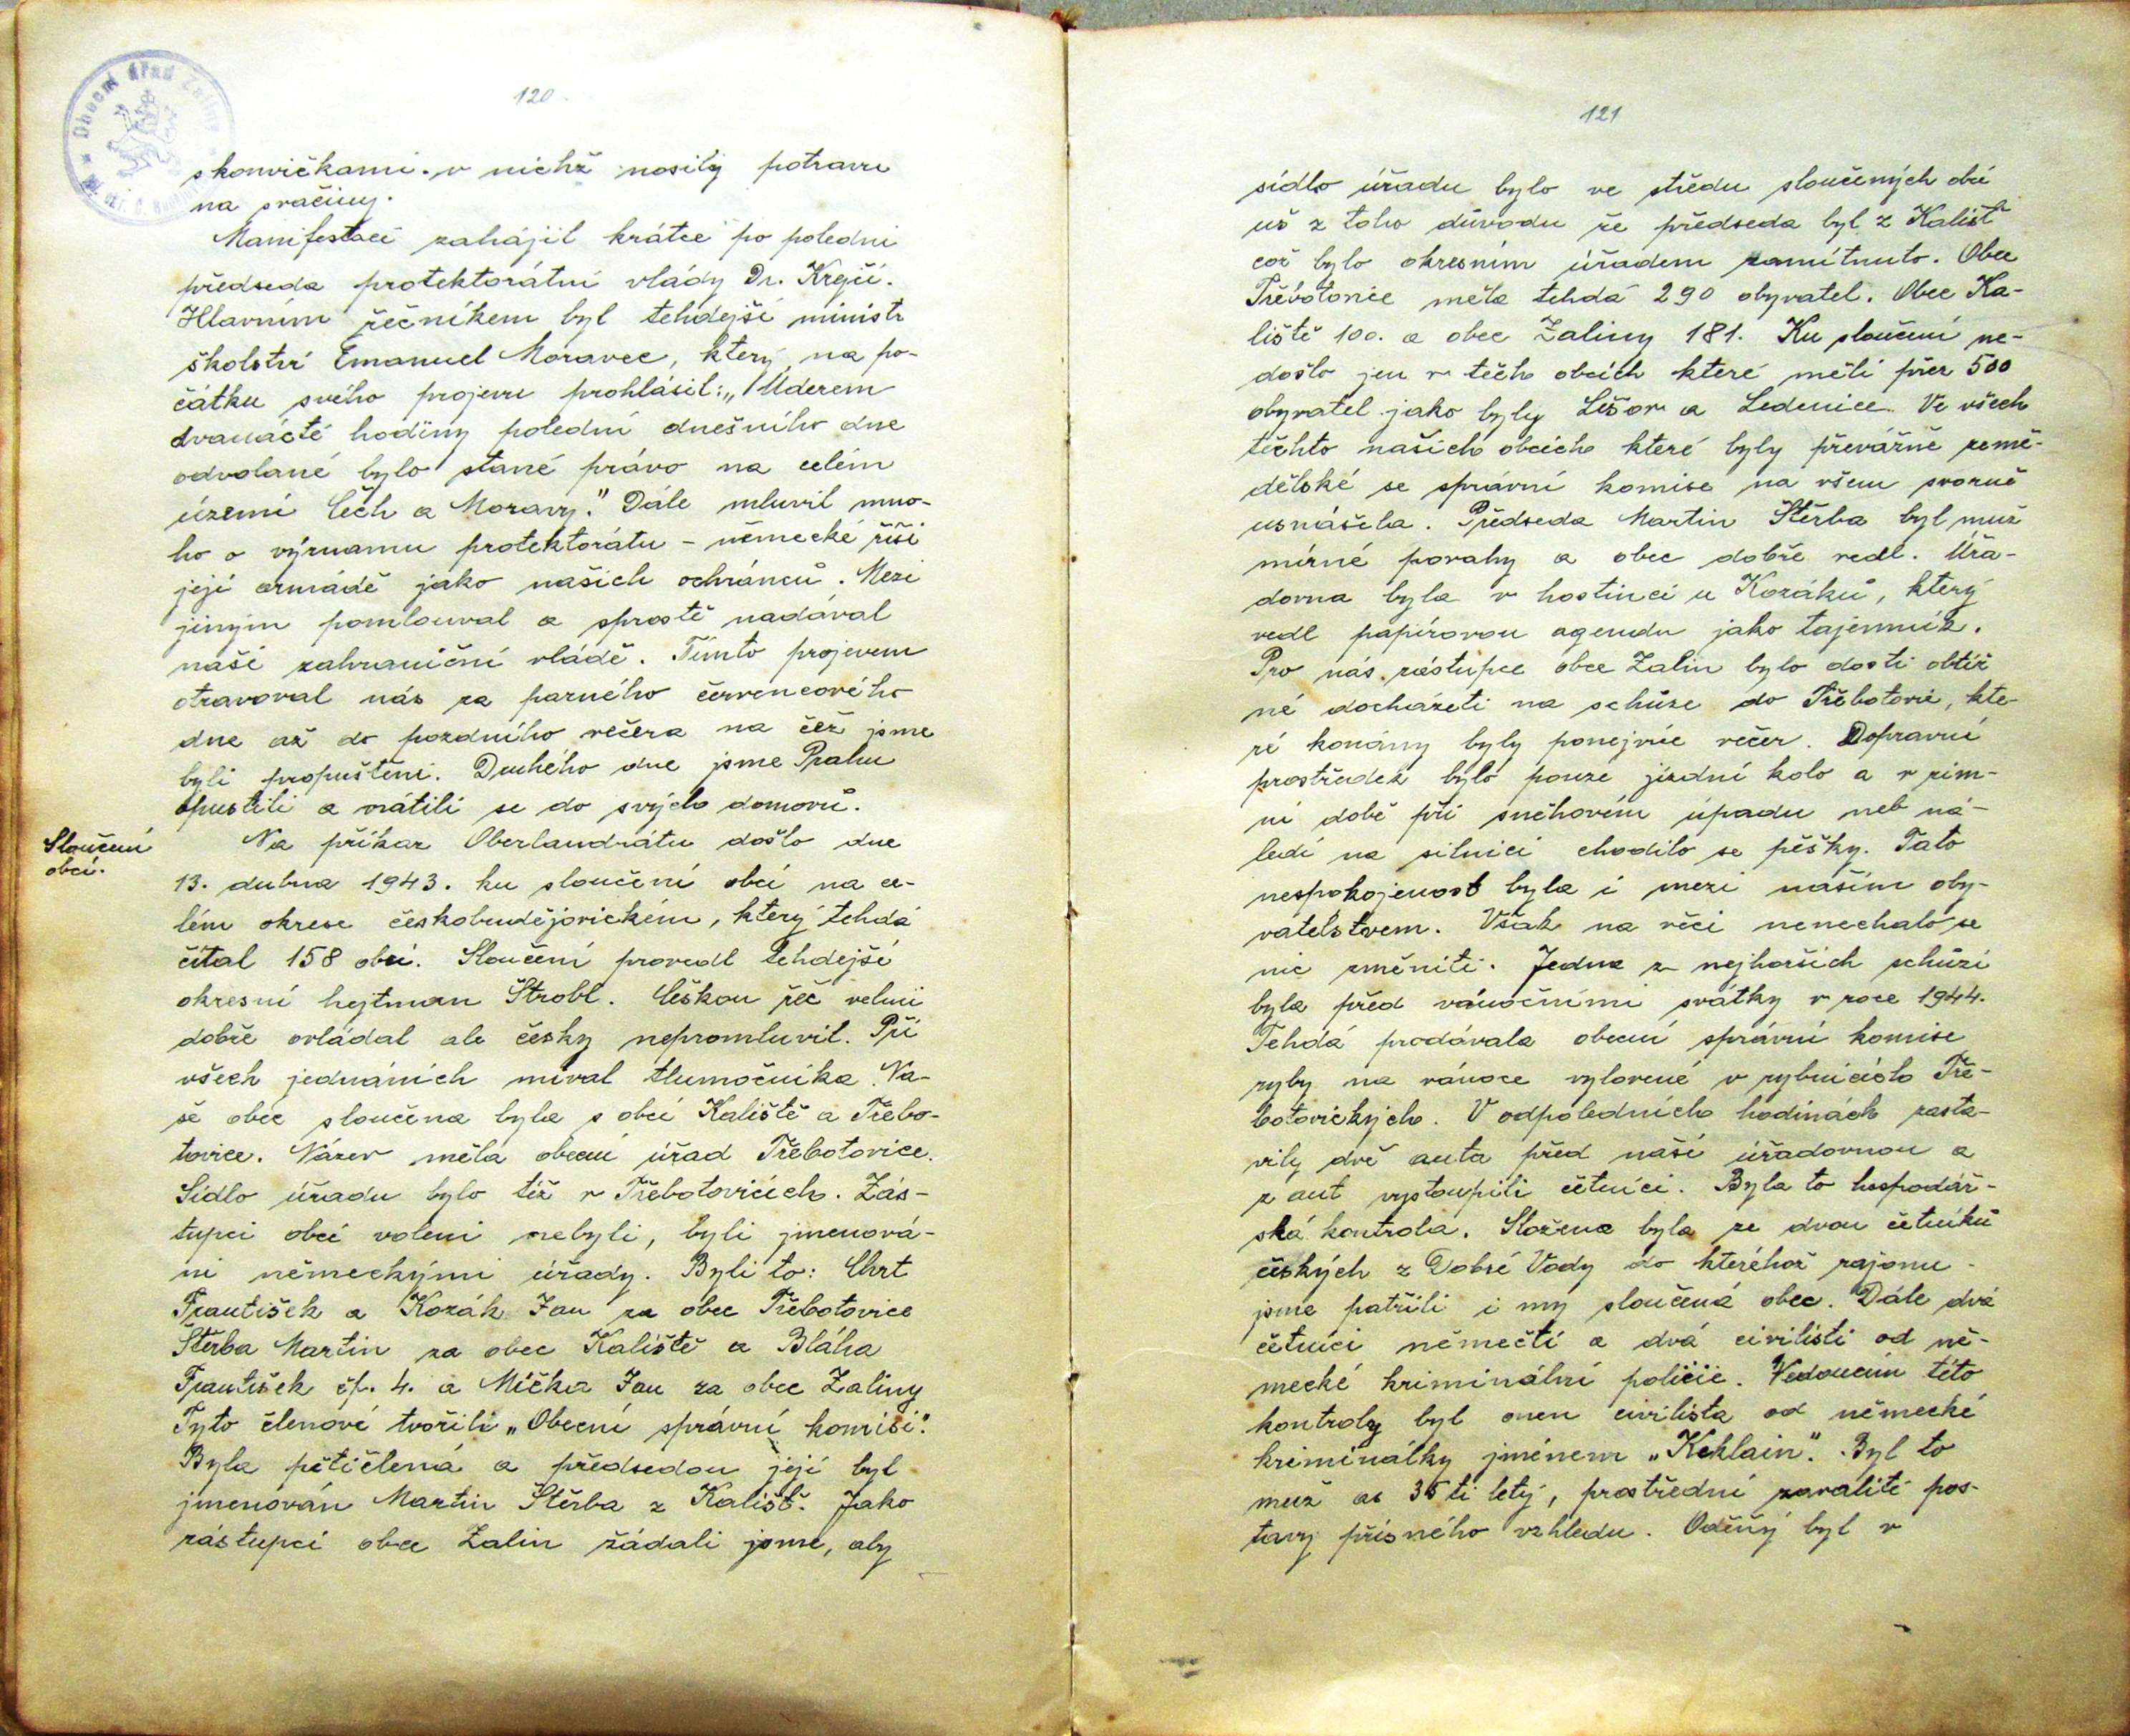 120
s konvičkami v nichž nosily potravu
na svačiny.
Manifestaci zahájil krátce po poledni
předseda protektorátní vlády Dr. Krejčí.
Hlavním řečníkem byl tehdejší ministr
školství Emanuel Moravec, který na po-
čátku svého projevu prohlásil: „Úderem
dvanácté hodiny polední dnešního dne
odvolané bylo stané právo na celém
území Čech a Moravy." Dále mluvil mno-
ho o významu protektorátu - německé říši
její armádě jako našich ochránců. Mezi
jiným pomlouval a sprostě nadával
naší zahraniční vládě. Tímto projevem
otravoval nás za parného červencového
dne až do pozdního večera na čež jsme
byli propuštěni. Druhého dne jsme Prahu
opustili a vrátili se do svých domovů.
Sloučení
obcí.
Na příkaz Oberlandrátu došlo dne
13. dubna 1943. ku sloučení obcí na ce-
lém okrese českobudějovickém, který tehdá
čítal 158 obcí. Sloučení provedl tehdejší
okresní hejtman Strobl. Češkou řeč velmi
dobře ovládal ale česky nepromluvil. Při
všech jednáních míval tlumočníka. Na-
še obec sloučena byla s obcí Kaliště a Třebo-
tovice. Název měla obecní úřad Třebotovice.
Sídlo úřadu bylo též v Třebotovicích. Zás-
tupci obcí voleni nebyli, byli jmenová-
ni německými úřady. Byli to: Chrt
František a Kozák Jan za obec Třebotovice
Štěrba Martin za obec Kaliště a Bláha
František čp. 4. a Mička Jan za obec Zaliny
Tyto členové tvořili „Obecní správní komisi".
Byla pětičlená a předsedou její byl
jmenován Martin Štěrba z Kališť. Jako
zástupci obce Zalin žádali jsme, aby
121
sídlo úřadu bylo ve středu sloučených obcí
už z toho důvodu že předseda byl z Kališť
což bylo okresním úřadem zamítnuto. Obec
Třebotovice měla tehdá 290 obyvatel. Obec Ka-
liště 100. a obec Zaliny 181. Ku sloučení ne-
došlo jen v těch obcích které měli přez 500
obyvatel jako byly Lišov a Ledenice. Ve všech
těchto našich obcích které byly převážně země-
dělské se správní komise na všem svorně
usnášela. Předseda Martin Štěrba byl muž
mírné povahy a obec dobře vedl. Úřa-
dovna byla v hostinci u Kozáků, který
vedl papírovou agendu jako tajemník.
Pro nás zástupce obce Zalin bylo dosti obtíž
né docházeti na schůze do Třebotovic, kte-
ré konány byly ponejvíc večer. Dopravní
prostředek bylo pouze jízdní kolo a v zim-
ní době při sněhovém úpadu neb ná-
ledí na silnici chodilo se pěšky. Tato
nespokojenost byla i mezi naším oby-
vatelstvem. Však na věci nenechalo se
nic změniti. Jedna z nejhorších schůzí
byla před vánočními svátky v roce 1944.
Tehdá prodávala obecní správní komise
ryby na vánoce vylovené v rybnících Tře-
botovických. V odpoledních hodinách zasta-
vily dvě auta před naší úřadovnou a
z aut vystoupili četníci. Byla to hospodář-
ská kontrola. Složena byla ze dvou četníků
českých z Dobré Vody do kteréhož rajonu
jsme patřili i my sloučená obec. Dále dvá
četníci němečtí a dvá civilisti od ně-
mecké kriminální policie. Vedoucím této
kontroly byl onen civilista od německé
kriminálky jménem „Keklain". Byl to
muž as 35 ti letý, prostřední zavalité pos-
tavy přísného vzhledu. Oděný byl v